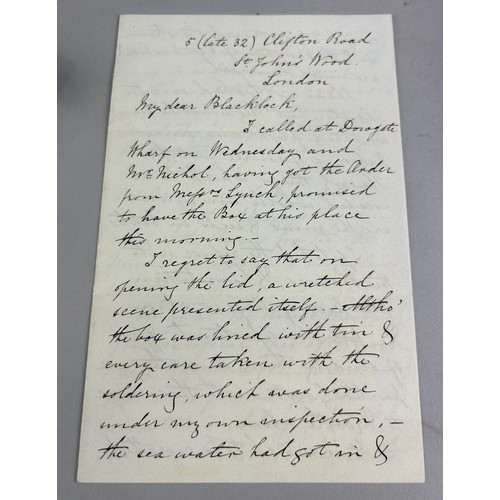 5 (late 32) Clifton Road
St. John's Wood.
London
My dear Blacklock,
I called at Dowgate
Wharf on Wednesday and
Mr. Nichol, having got the Order
from Messrs Lynch, promised
to have the Box at his place
this morning. –
I regret to say that on
opening the lid, a wretched
scene presented itself. – Altho'
the box was lined with tin &
every care taken with the
soldering, which was done
under my own inspection, –
the sea water had got in &